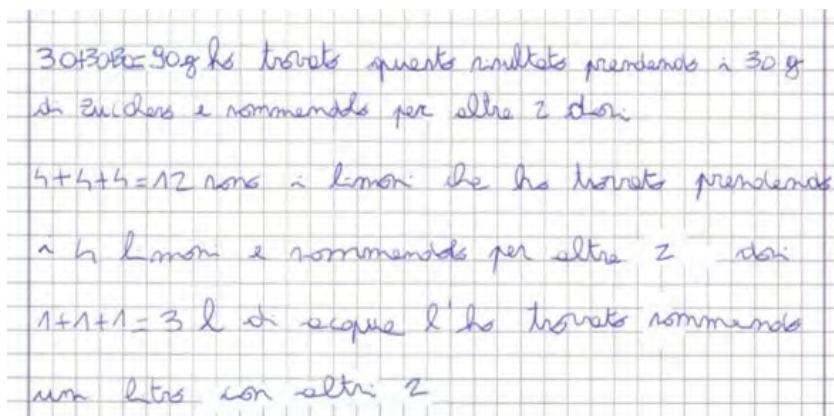 30+30+30=90g ho trovato questo risultato prendendo i 30 g
di zucchero e sommandolo per altre 2 dosi
4+4+4=12 sono i limoni che ho trovato prendendo
i 4 limoni e sommandolo per altre 2 dosi
1+1+1=3 l di acqua l'ho trovato sommando
un litro con altri 2